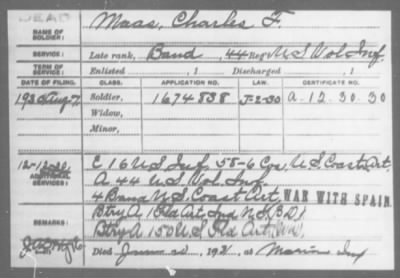 DEAD
NAME OF SOLDIER: Maas, Charles F.
SERVICE: Late rank, Band, 44 Reg't U S Vol Inf.
TERM OF SERVICE: Enlisted , 1 Discharged , 1
DATE OF FILING. CLASS. APPLICATION NO. LAW. CERTIFICATE NO.
1930 Aug 7 Soldier, 1674838 J-2-30 A-12-30-30
Widow,
Minor,
ADDITIONAL SERVICES: E 16 U.S. Inf, 58-6 Cos, U.S. Coast Art,
A 44 U.S. Vol. Inf,
4 Band U.S. Coast Art, WAR WITH SPAIN
REMARKS: Btry A 1 Fld Art, Ind N.G.
Btry A 150 U.S. Fld Art,
Died 193 , at Marion Ind